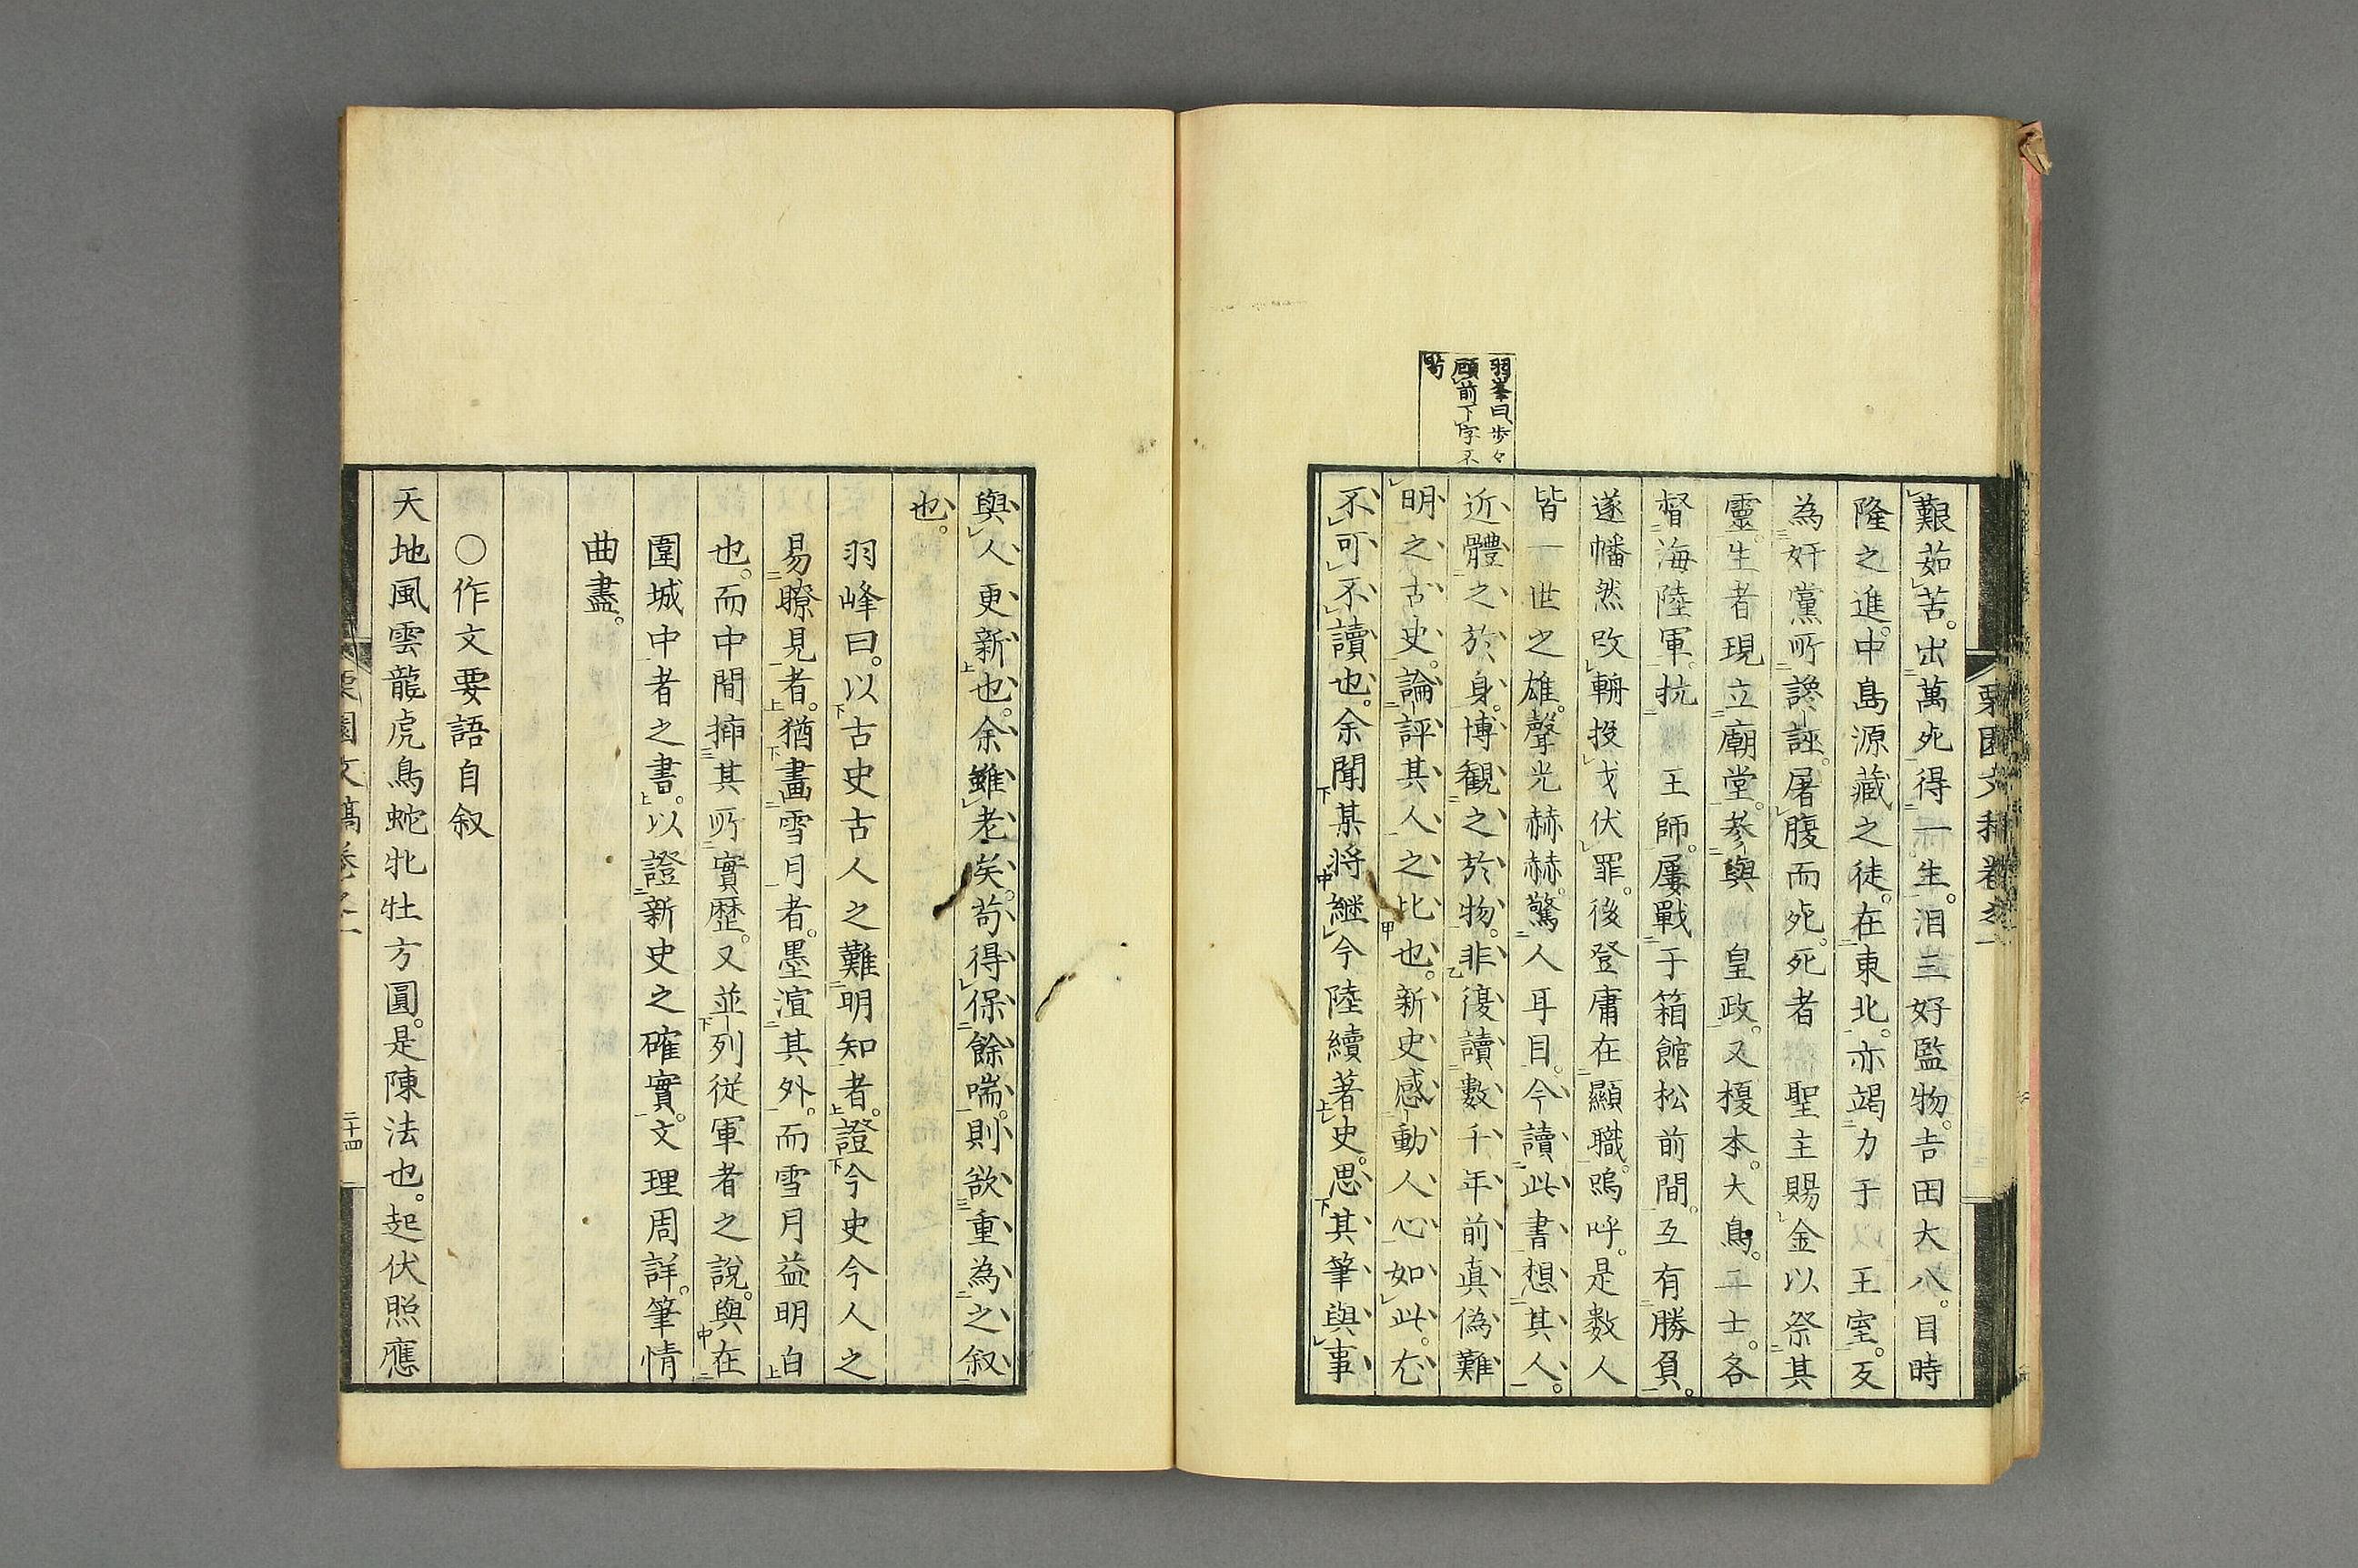 艱茹苦。出萬死得一生。曰三好監物。吉田大八。目時
隆之進。中島源藏之徒。在東北。亦竭力于王室。反
為奸黨所讒誣。屠腹而死。死者 聖主賜金以祭其
靈。生者現立廟堂。參與 皇政。又榎本。大鳥。二士。各
督海陸軍。抗 王師。屢戰于箱館松前間。互有勝負。
遂幡然改轉投戈伏罪。後登庸在顯職。嗚呼。是數人
皆一世之雄。聲光赫赫。驚人耳目。今讀此書想其人。
近體之於身。博觀之於物。非復讀數千年前真偽難
明之古史。論評其人之比也。新史感動人心如此。尤
不可不讀也。余聞某將繼今陸續著史。思其筆與事
羽峯曰歩々
顧前下字不
苟
栗園文稿卷之一
與人更新也。余雖老矣。苟得保餘喘。則欲重為之叙
也。
羽峰曰。以古史古人之難明知者。證今史今人之
易瞭見者。猶畫雪月者。墨渲其外。而雪月益明白
也。而中間揷其所實歷。又並列從軍者之說。與在
圍城中者之書。以證新史之確實。文理周詳。筆情
曲盡。
○作文要語自叙
天地風雲龍虎鳥蛇牝牡方圓。是陳法也。起伏照應
栗園文稿卷之一
二十四